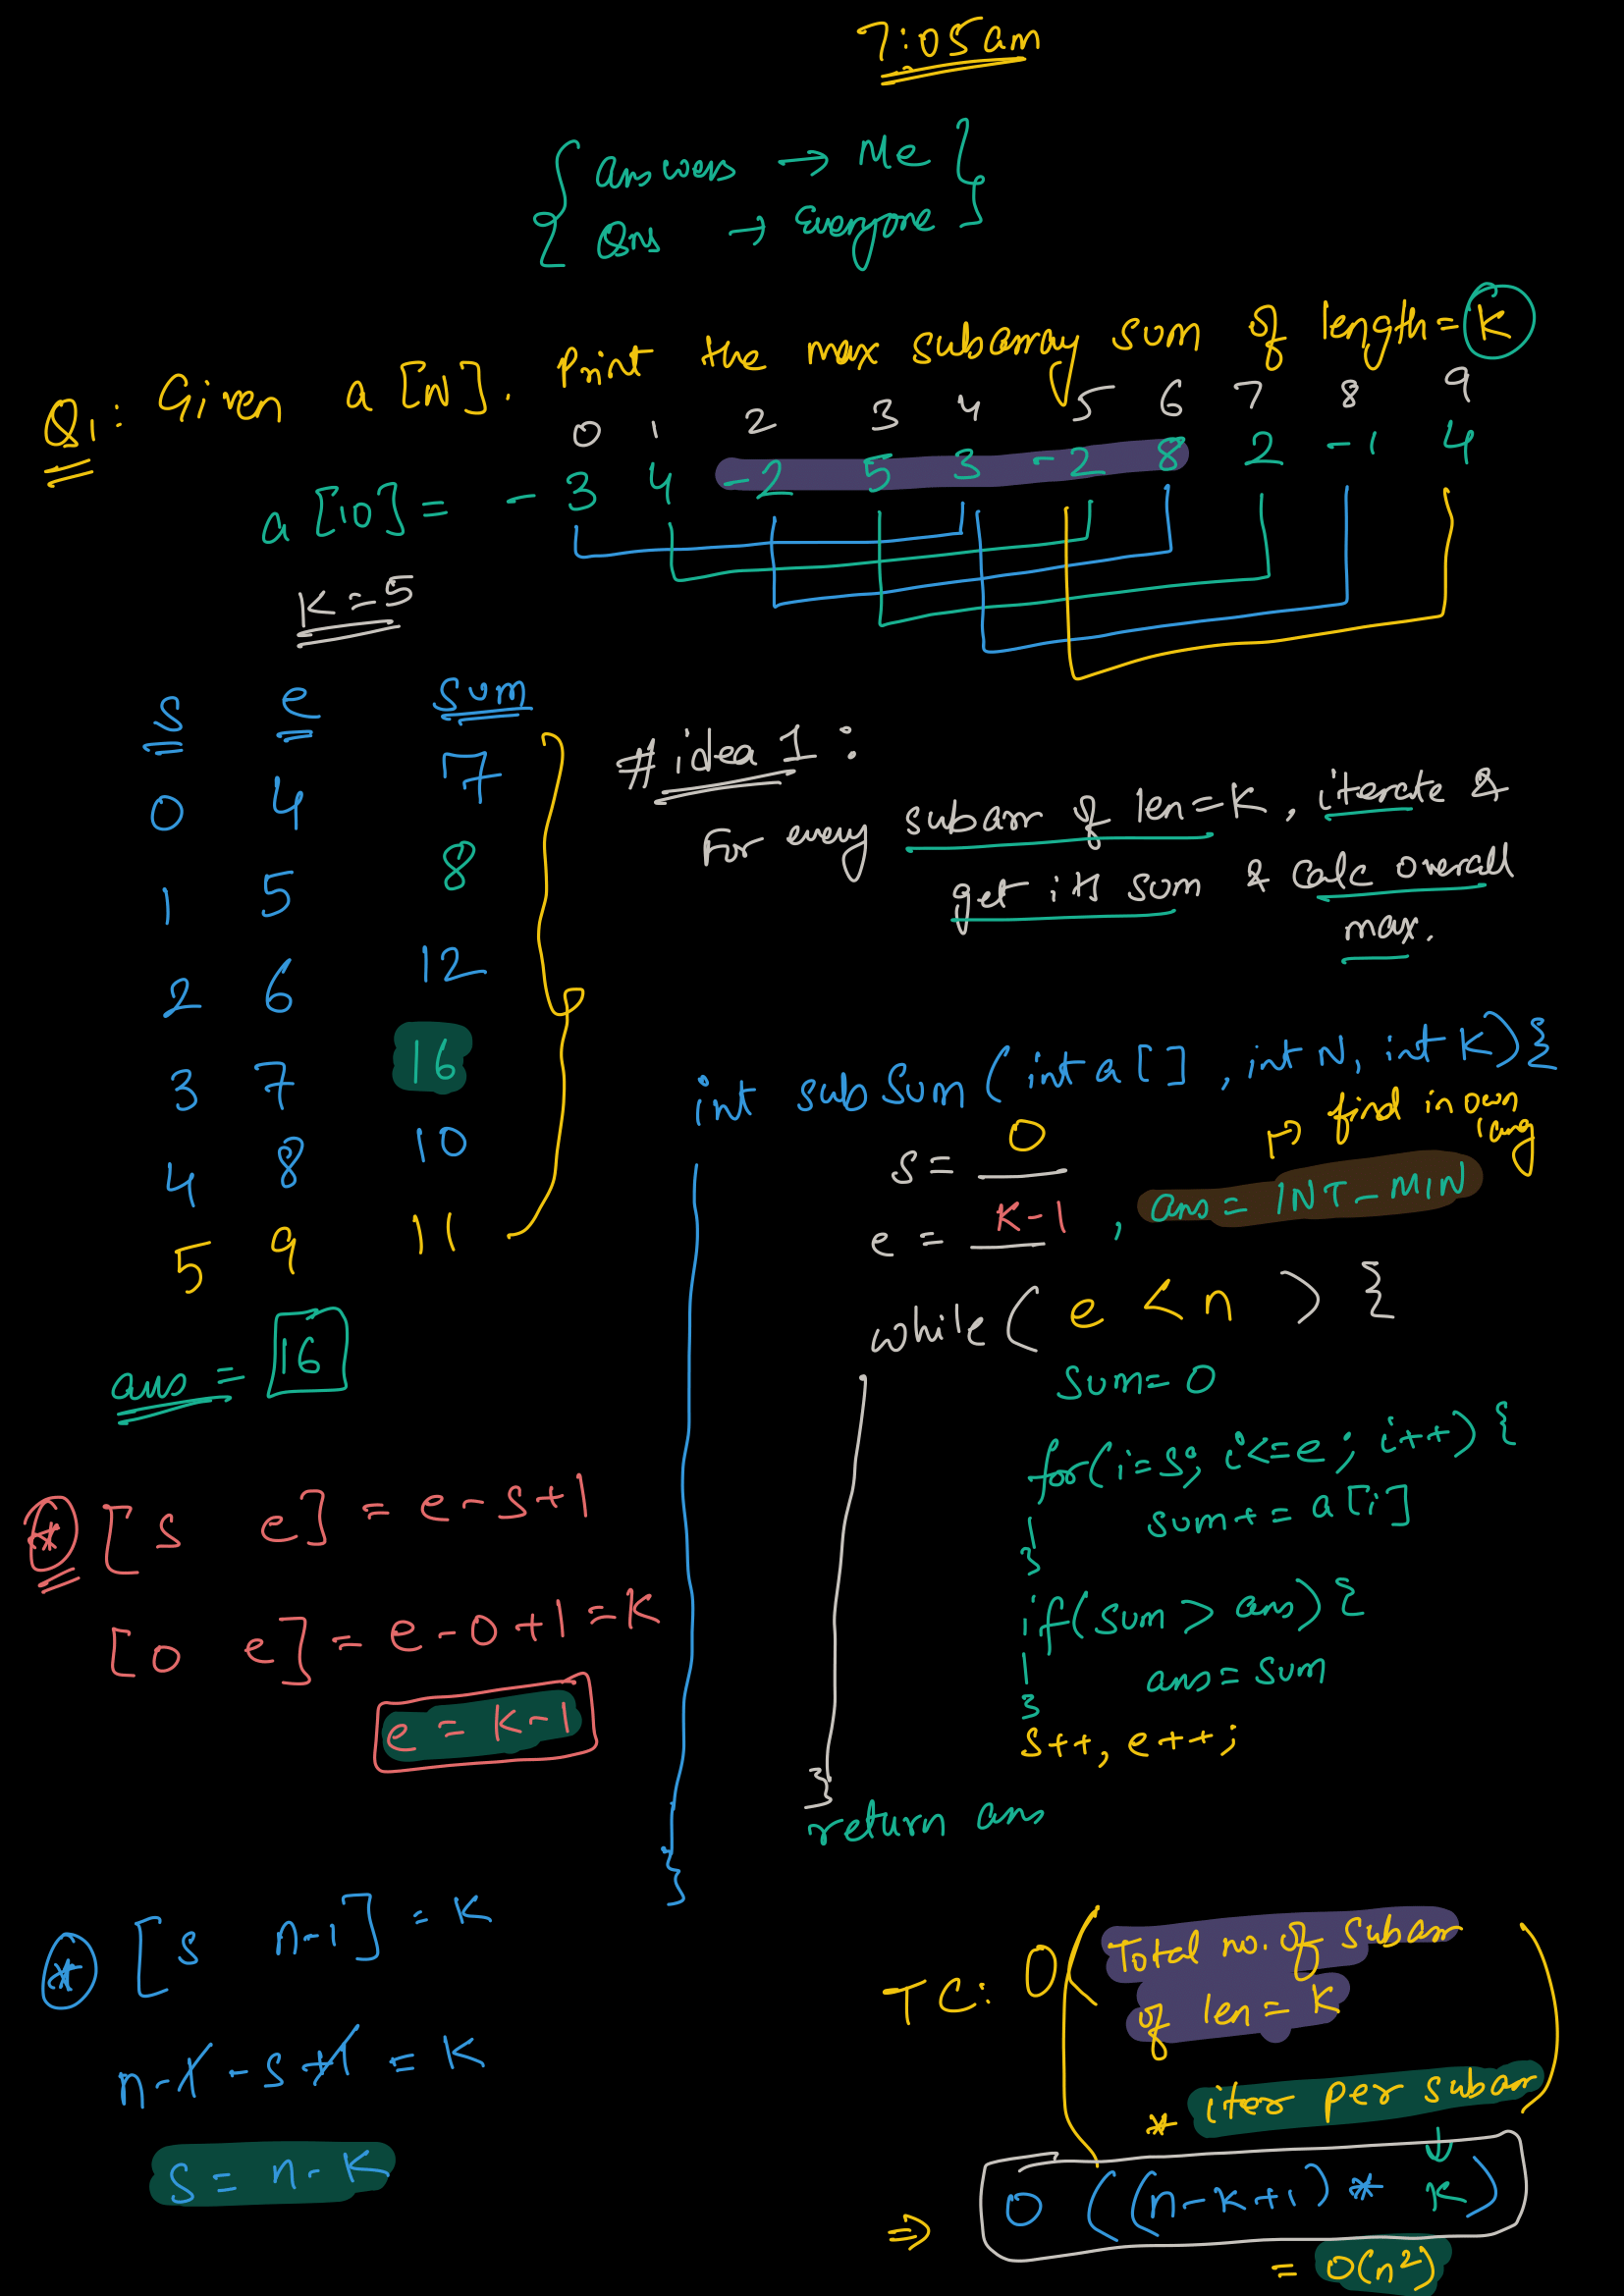 7:05am
{ answers → Me }
{ Qns → Everyone }
Q1: Given a [N]. Print the max subarray sum of length = K
0 1 2 3 4 5 6 7 8 9
a [10] = -3 4 -2 5 3 -2 8 2 -1 4
K = 5
s e sum
0 4 7
1 5 8
2 6 12
3 7 16
4 8 10
5 9 11
ans = 16
# idea 1 :
For every subarr of len = K , iterate &
get its sum & calc overall
max.
int subSum ( int a [ ] , int N, int K ) {
↦ find in own
lang
s = 0
e = K-1 , ans = INT_MIN
while ( e < n ) {
sum = 0
for( i = s; i <= e ; i++ ) {
sum += a[i]
}
if( sum > ans ) {
ans = sum
}
s++, e++;
}
return ans
}
* [ s e ] = e - s + 1
[ 0 e ] = e - 0 + 1 = K
e = K-1
* [ s n-1 ] = K
n - 1 - s + 1 = K
s = n - K
TC: O( Total no. of subarr
of len = K
* iter per subarr )
⇒ O ( (n-K+1) * K )
= O(n²)